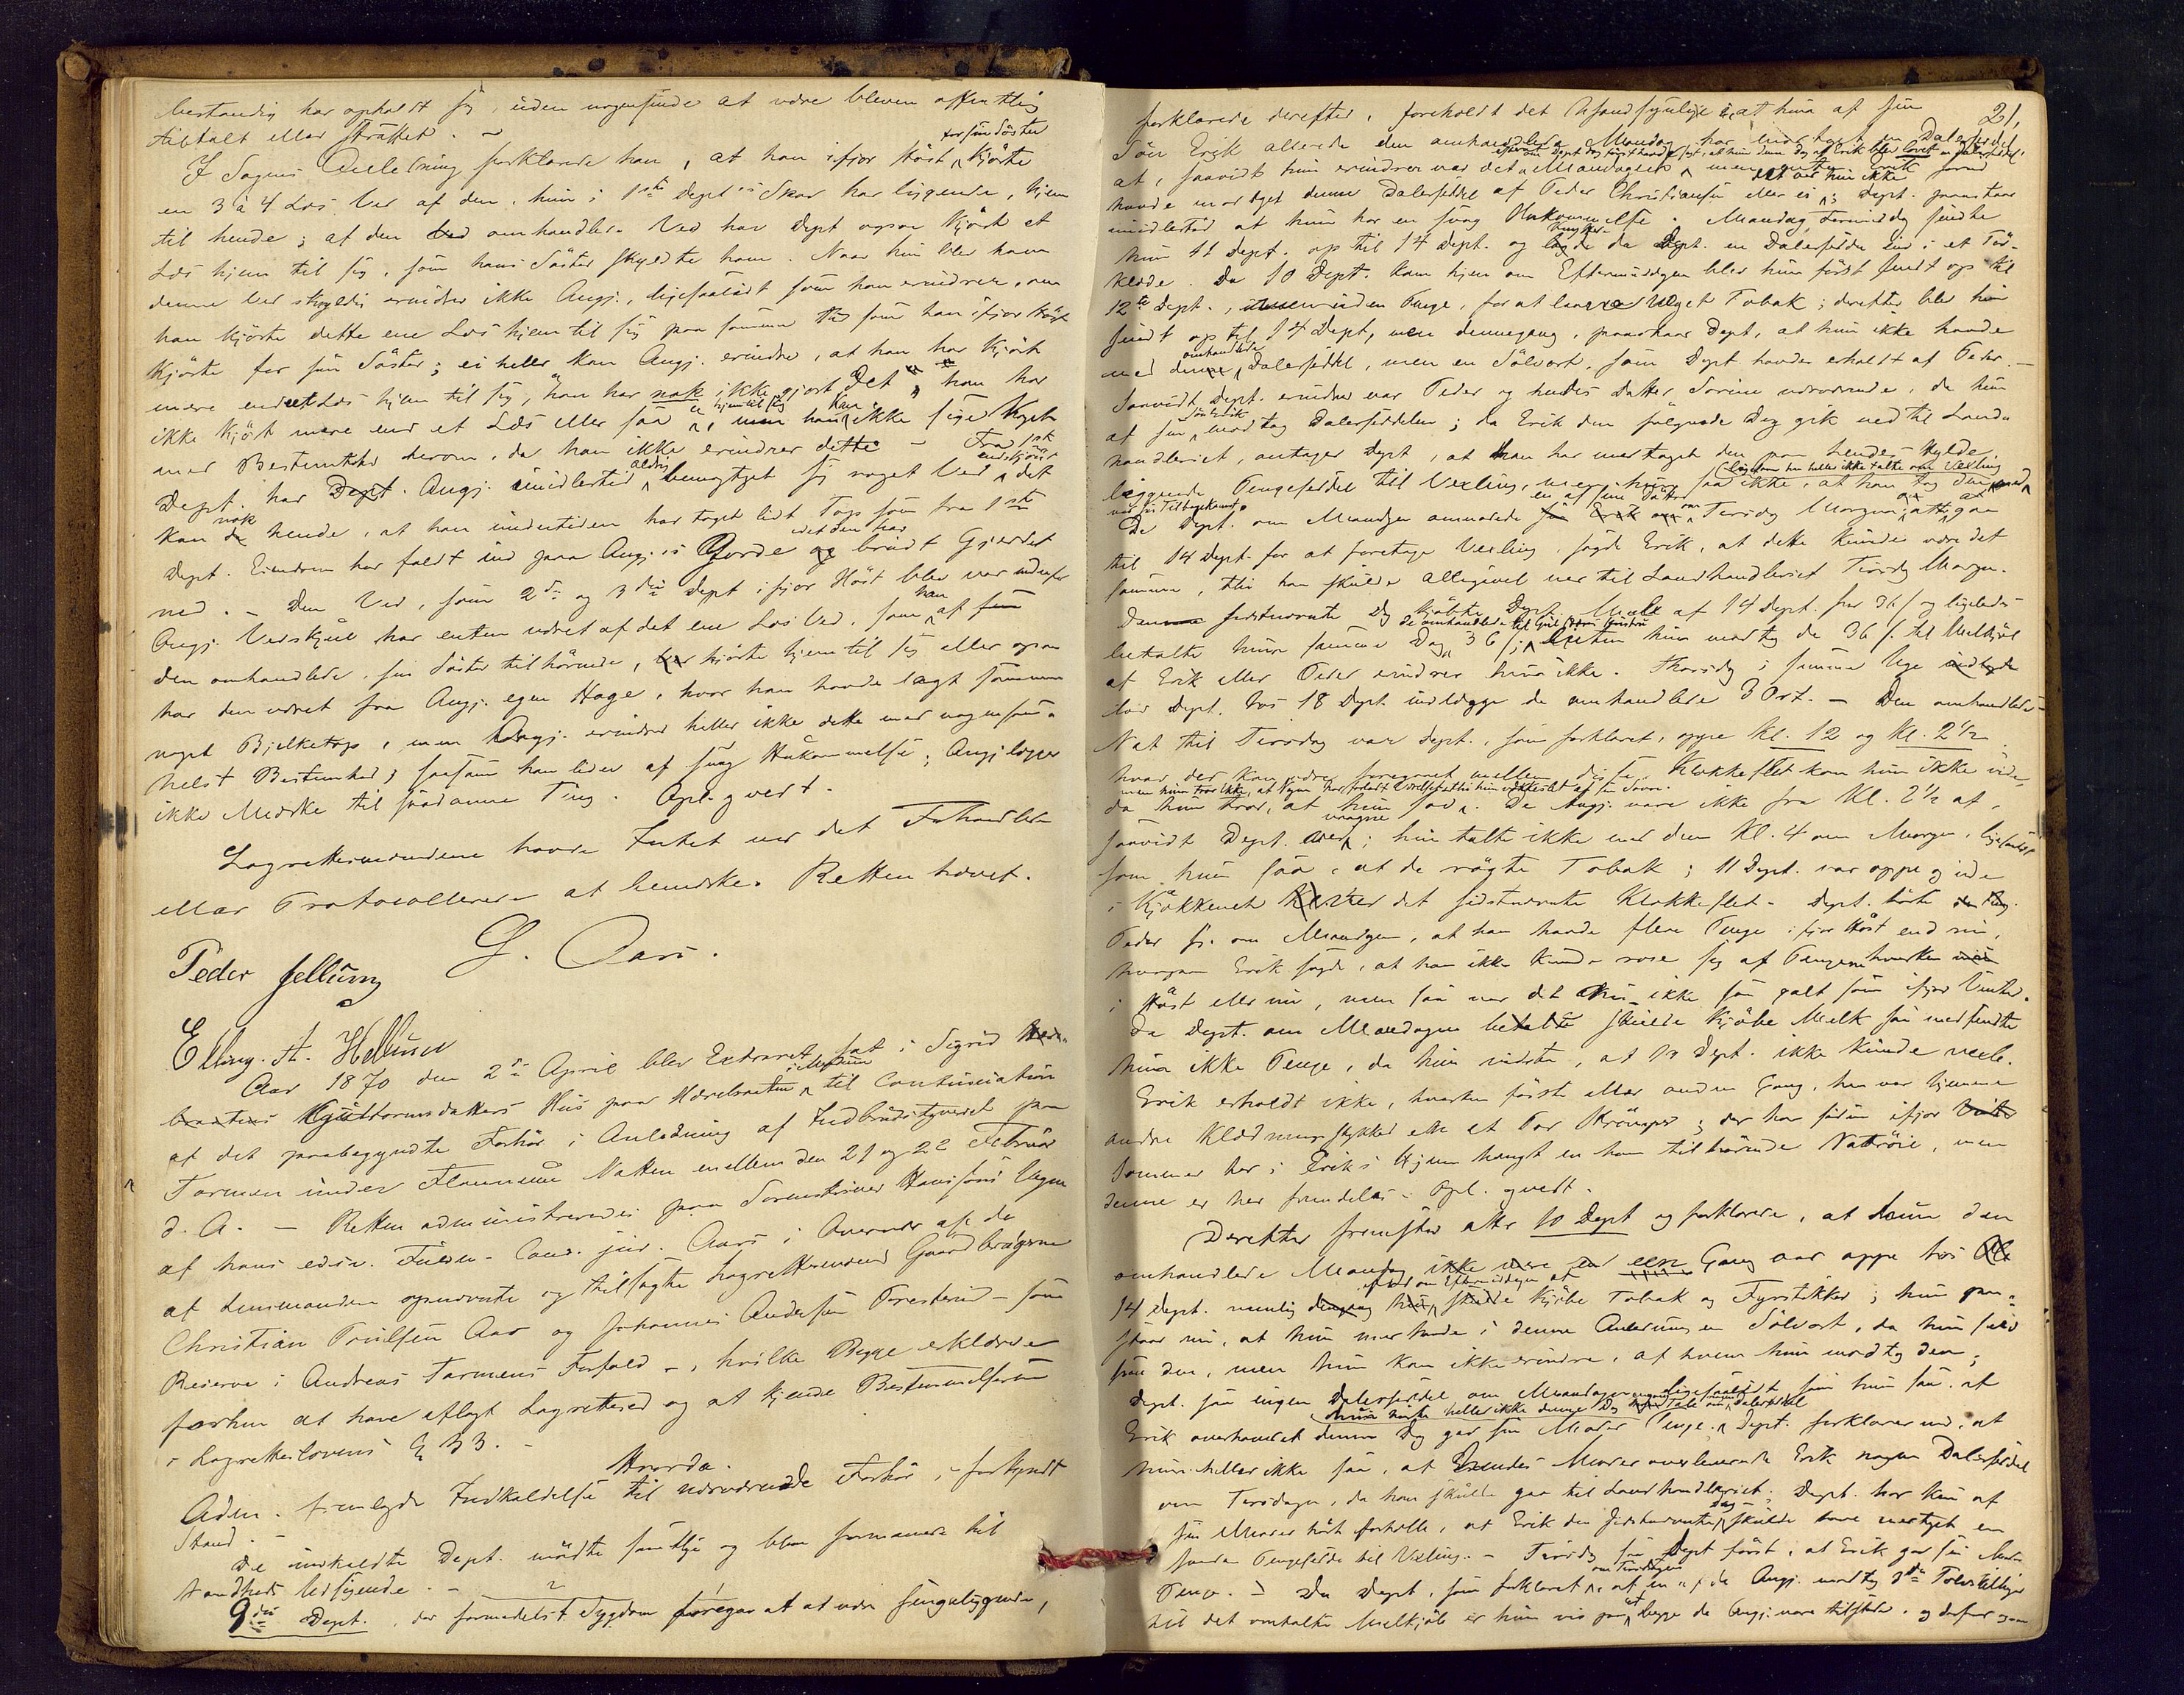 bestandig har opholdt sig, uden nogensinde at være bleven offentlig
tiltalt eller straffet. –
I Sagens Anledning forklarede han, at han ifjor Höst for sin Söster kjörte
en 3 à 4 Læs Ved af den, hun i 1ste Dept.s Skov har liggende, hjem
til hende; af den omhandlede Ved har Dept ogsaa kjört et
Læs hjem til sig, som hans Söster skyldte ham. Naar hun blev ham
denne Ved skyldig erindrer ikke Angj., ligesaalidt som han erindrer, om
han kjörte dette ene Læs hjem til sig paa samme Tid som han ifjor Höst
kjörte for sin Söster; ei heller kan Angj. erindre, at han har kjört
mere end et Læs hjem til sig, "han har nok ikke gjort det", han har
ikke kjört mere end et Læs eller saa hjem til sig, men han kan ikke sige Noget
med Bestemthed derom, da han ikke erindrer dette – Fra 1ste
Dept. har Angj. imidlertid aldrig bemægtiget sig noget Ved, endskjönt det
kan nok hende, at han undertiden har taget lidt Top som fra 1ste
Dept. Eiendom har faldt ind paa Angj.s Jorde idet den har brudt Gjerdet
ned. – Den Ved, som 2den og 3die Dept ifjor Höst blev var udenfor
Angj. Vedskjul har enten været af det ene Læs Ved, som han af
den omhandlede, sin Söster tilhörende, kjörte hjem til sig eller ogsaa
har den været fra Angj. egen Hage, hvor han havde lagt sammen
noget Bjelketop, men Angj. erindrer heller ikke dette med nogensom-
helst Bestemthed, saasom han lider af svag Hukommelse; Angj. lægger
ikke Mærke til saadanne Ting. Opl. gvedt.
Lagrettesmændene havde Intet ved det Forhandlede
eller Protocollerede at bemærke. Retten hævet.
G. Aars.
Peder Jellum
Elling. A. Hellum
Aar 1870 den 2den April blev Extraret sat i Sigrid
Guttormsdatters Hus paa til Continuation
af det paabegyndte Forhör i Anledning af Indbrudstyveri paa
Tormen under Natten mellem den 21 og 22 Februar
d. A. – Retten administreredes paa Sorenskriver Hanssons Vegne
af hans edsv. Fuldm. Cand. jur. Aars i Overvær af de
af Lensmanden opnævnte og tilsagte Lagrettesmænd Gaardbrugerne
Christian Troilsen Aas og Johannes Andersen – som
Reserve i Andreas Tormens Forfald –, hvilke Begge erklærede
forhen at have aflagt Lagrettesed og at kjende Bestemmelserne
i Lagretteslovens § 33. –
Hvorda.
Adm. fremlagde Indkaldelse til nærværende Forhör i forkyndt
Stand. –
De indkaldte Dept. mödte samtlige og blev formanede til
Sandheds Udsigende. –
9de Dept., der formedelst Sygdom foregav at være sengeliggende,
21,
forklarede derefter, foreholdt det Usandsynlige i, at hun af sin
Sön Erik allerede den omhandlede Mandag har modtaget en Daleseddel
at, saavidt hun erindrer var det Mandagen, men Erik forud
havde modtaget denne Daleseddel af Peder Christiansen eller ei, det ved hun ikke; Dept. paastaar
imidlertid at hun har en svag Hukommelse. Mandag Formiddag sendte
hun 11 Dept. op til 14 Dept. og da Dept. en Daleseddel ind i et Tör-
klæde. Da 10 Dept. kom hjem om Eftermiddagen blev hun först sendt op til
12te Dept., uden Penge, for at laane Noget Tobak; derefter blev hun
sendt op til 14 Dept, men dennegang, paastaar Dept, at hun ikke havde
med omhandlede Daleseddel, men en Sölvort, som Dept havde erholdt af Peder. –
Saavidt Dept. erindrer var Peder og hendes Datter Sorine nærværende, da hun
af sin Sön Erik modtog Dalersedelen; da Erik den fölgende Dag gik ned til Land-
handleriet, antager Dept, at han har medtaget den paa hendes Hylde
liggende Pengeseddel til Vexling, men hun saa ikke, at han tog den med,
ligesom han heller ikke talte om Vexling ved sin Tilbagekomst.
Da Dept. om Mandagen anmodede en af sine Döttre om Tirsdag Morgen at gaa
til 14 Dept. for at foretage Vexling, sagde Erik, at dette kunde være det
samme, thi han skulde alligevel ned til Landhandleriet Tirsdag Morgen.
Den sidstnævnte Dag kjöbte Dept. Melk af 14 Dept. for 36 s og ligeledes
betalte hun samme Dag de omhandlede 36 s; Enten hun modtog de 36 s. til Melkjöb
af Erik eller Peder erindrer hun ikke. Thorsdag i samme Uge
lod Dept. hos 18 Dept. indlægge de omhandlede 3 Ort. – Den omhandlede
Nat til Tirsdag var Dept., som forklaret, oppe Kl. 12 og Kl. 2½
hvad der kan være foregaaet mellem disse Klokkeslet kan hun ikke vide
da hun tror, at hun sov. De Angj. vare ikke fra Kl. 2½ af,
saavidt Dept. ved, vaagne; hun talte ikke med dem Kl. 4 om Morgen, ligesaalidt
som hun saa, at de rögte Tobak; 11 Dept. var oppe og inde
i Kjökkenet ved det sidstnævnte Klokkeslet – Dept. hörte
Peder sige om Mandagen, at han havde flere Penge ifjor Höst end nu,
hvorpaa Erik sagde, at han ikke kunde rose sig af Penge hverken
i Höst eller nu, men saa var det ikke saa galt som ifjor Vinter.
Da Dept. om Mandagen skulde kjöbe Melk saa medsendte
hun ikke Penge, da hun vidste, at 14 Dept. ikke kunde vexle.
Erik erholdt ikke, hverken förste eller anden Gang, han var hjemme
andre Klædningsstykker end et Par Strömper; der har siden ifjor
Sommer her i Eriks Hjem hængt en ham tilhörende Nattröie, men
denne er her fremdeles. Opl. gvedt.
Derefter fremstod atter 10 Dept og forklarede, at hun den
omhandlede Mandag een Gang var oppe hos
14 Dept. nemlig om Eftermiddagen at kjöbe Tobak og Fyrstikker; hun paa-
staar nu, at hun medhavde i denne Anledning en Sölvort, da hun selv
saa den, men hun kan ikke erindre, af hvem hun modtog den;
Dept. saa ingen Daleseddel om Mandagen ligesaalidt som hun saa, at
Erik overhovedet denne Dag gav sin Moder Penge; hun hörte heller ikke denne Dag Tale om Daleseddel Dept. forklarer nu, at
hun heller ikke saa, at hendes Moder overleverede Erik nogen Daleseddel
om Tirsdagen, da han skulde gaa til Landhandleriet; Dept. har kun af
sin Moder hört fortælle, at Erik den sidstnævnte Dag skulde have medtaget en
saadan Pengeseddel til Vexling. – Tirsdag saa Dept först, at Erik gav sin Moder
Penge. – Da Dept, som forklaret, om Tirsdagen af en af de Angj. modtog 3de Tolvskillinger
til det omtalte Melkjöb er hun vis paa at begge de Angj. vare tilstede, og derfor ogsaa